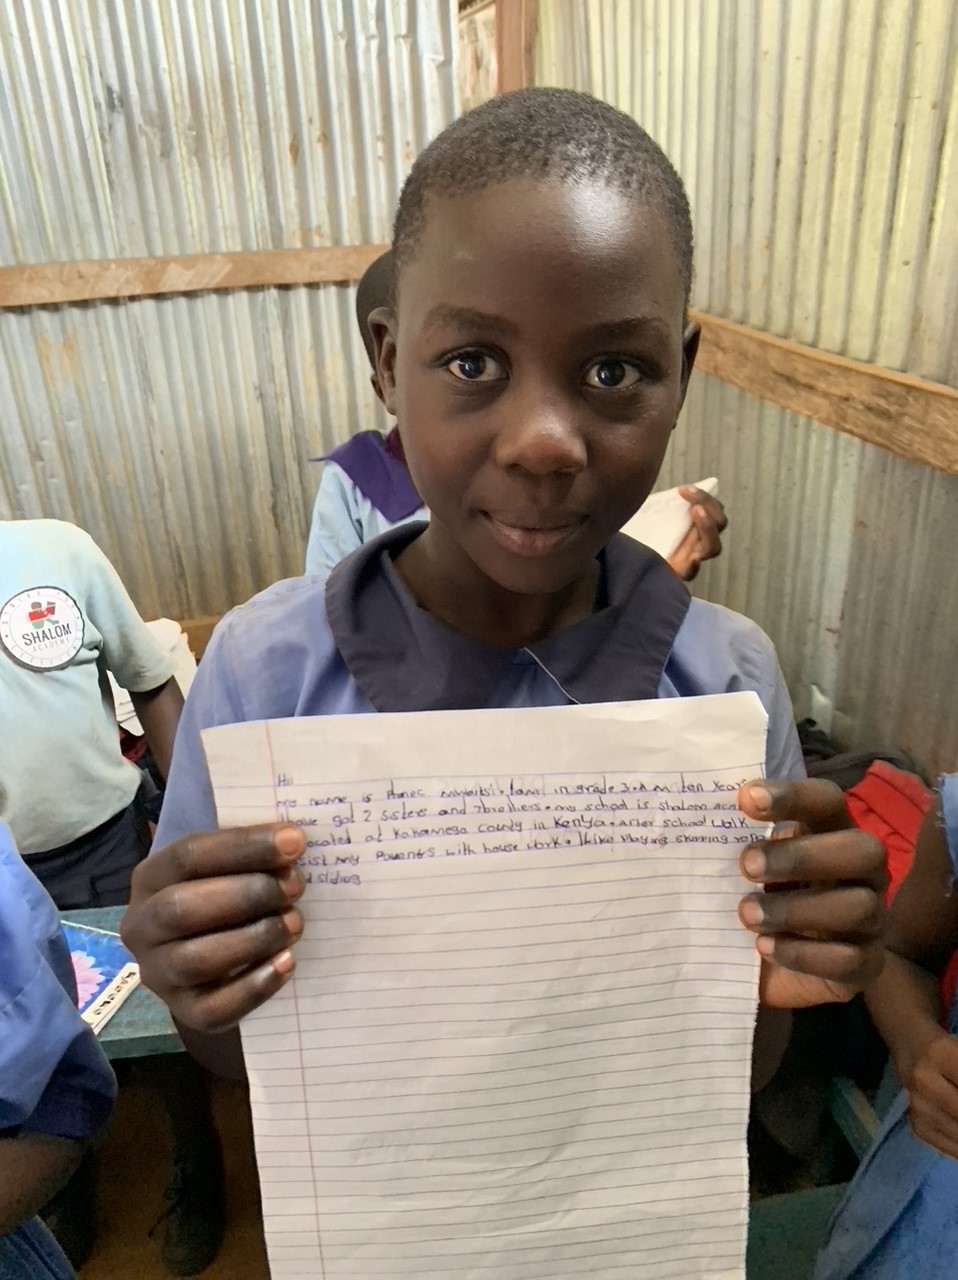 SHALOM
ACADEMY
Hii
my name is Agnes I am in grade 3. A m ten years
I have got 2 sisters and 7brothers. my school is shalom aca
located at Kakamega county in Kenya. After school walk
sist my Parents with house work. I like Playing skipping rope
d sliding